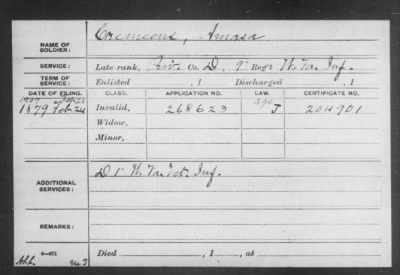 NAME OF SOLDIER: Cremeens, Amasa
SERVICE: Late rank, Priv. Co. D, 9" Reg't W. Va. Inf.
TERM OF SERVICE: Enlisted , 1 Discharged , 1
DATE OF FILING. CLASS. APPLICATION NO. LAW. CERTIFICATE NO.
1907
1879 Feb. 24 Invalid, 268623 age J 204901
Widow,
Minor,
ADDITIONAL SERVICES: D 1" W. Va. Vet. Inf.
REMARKS:
6—401 Died , 1 , at